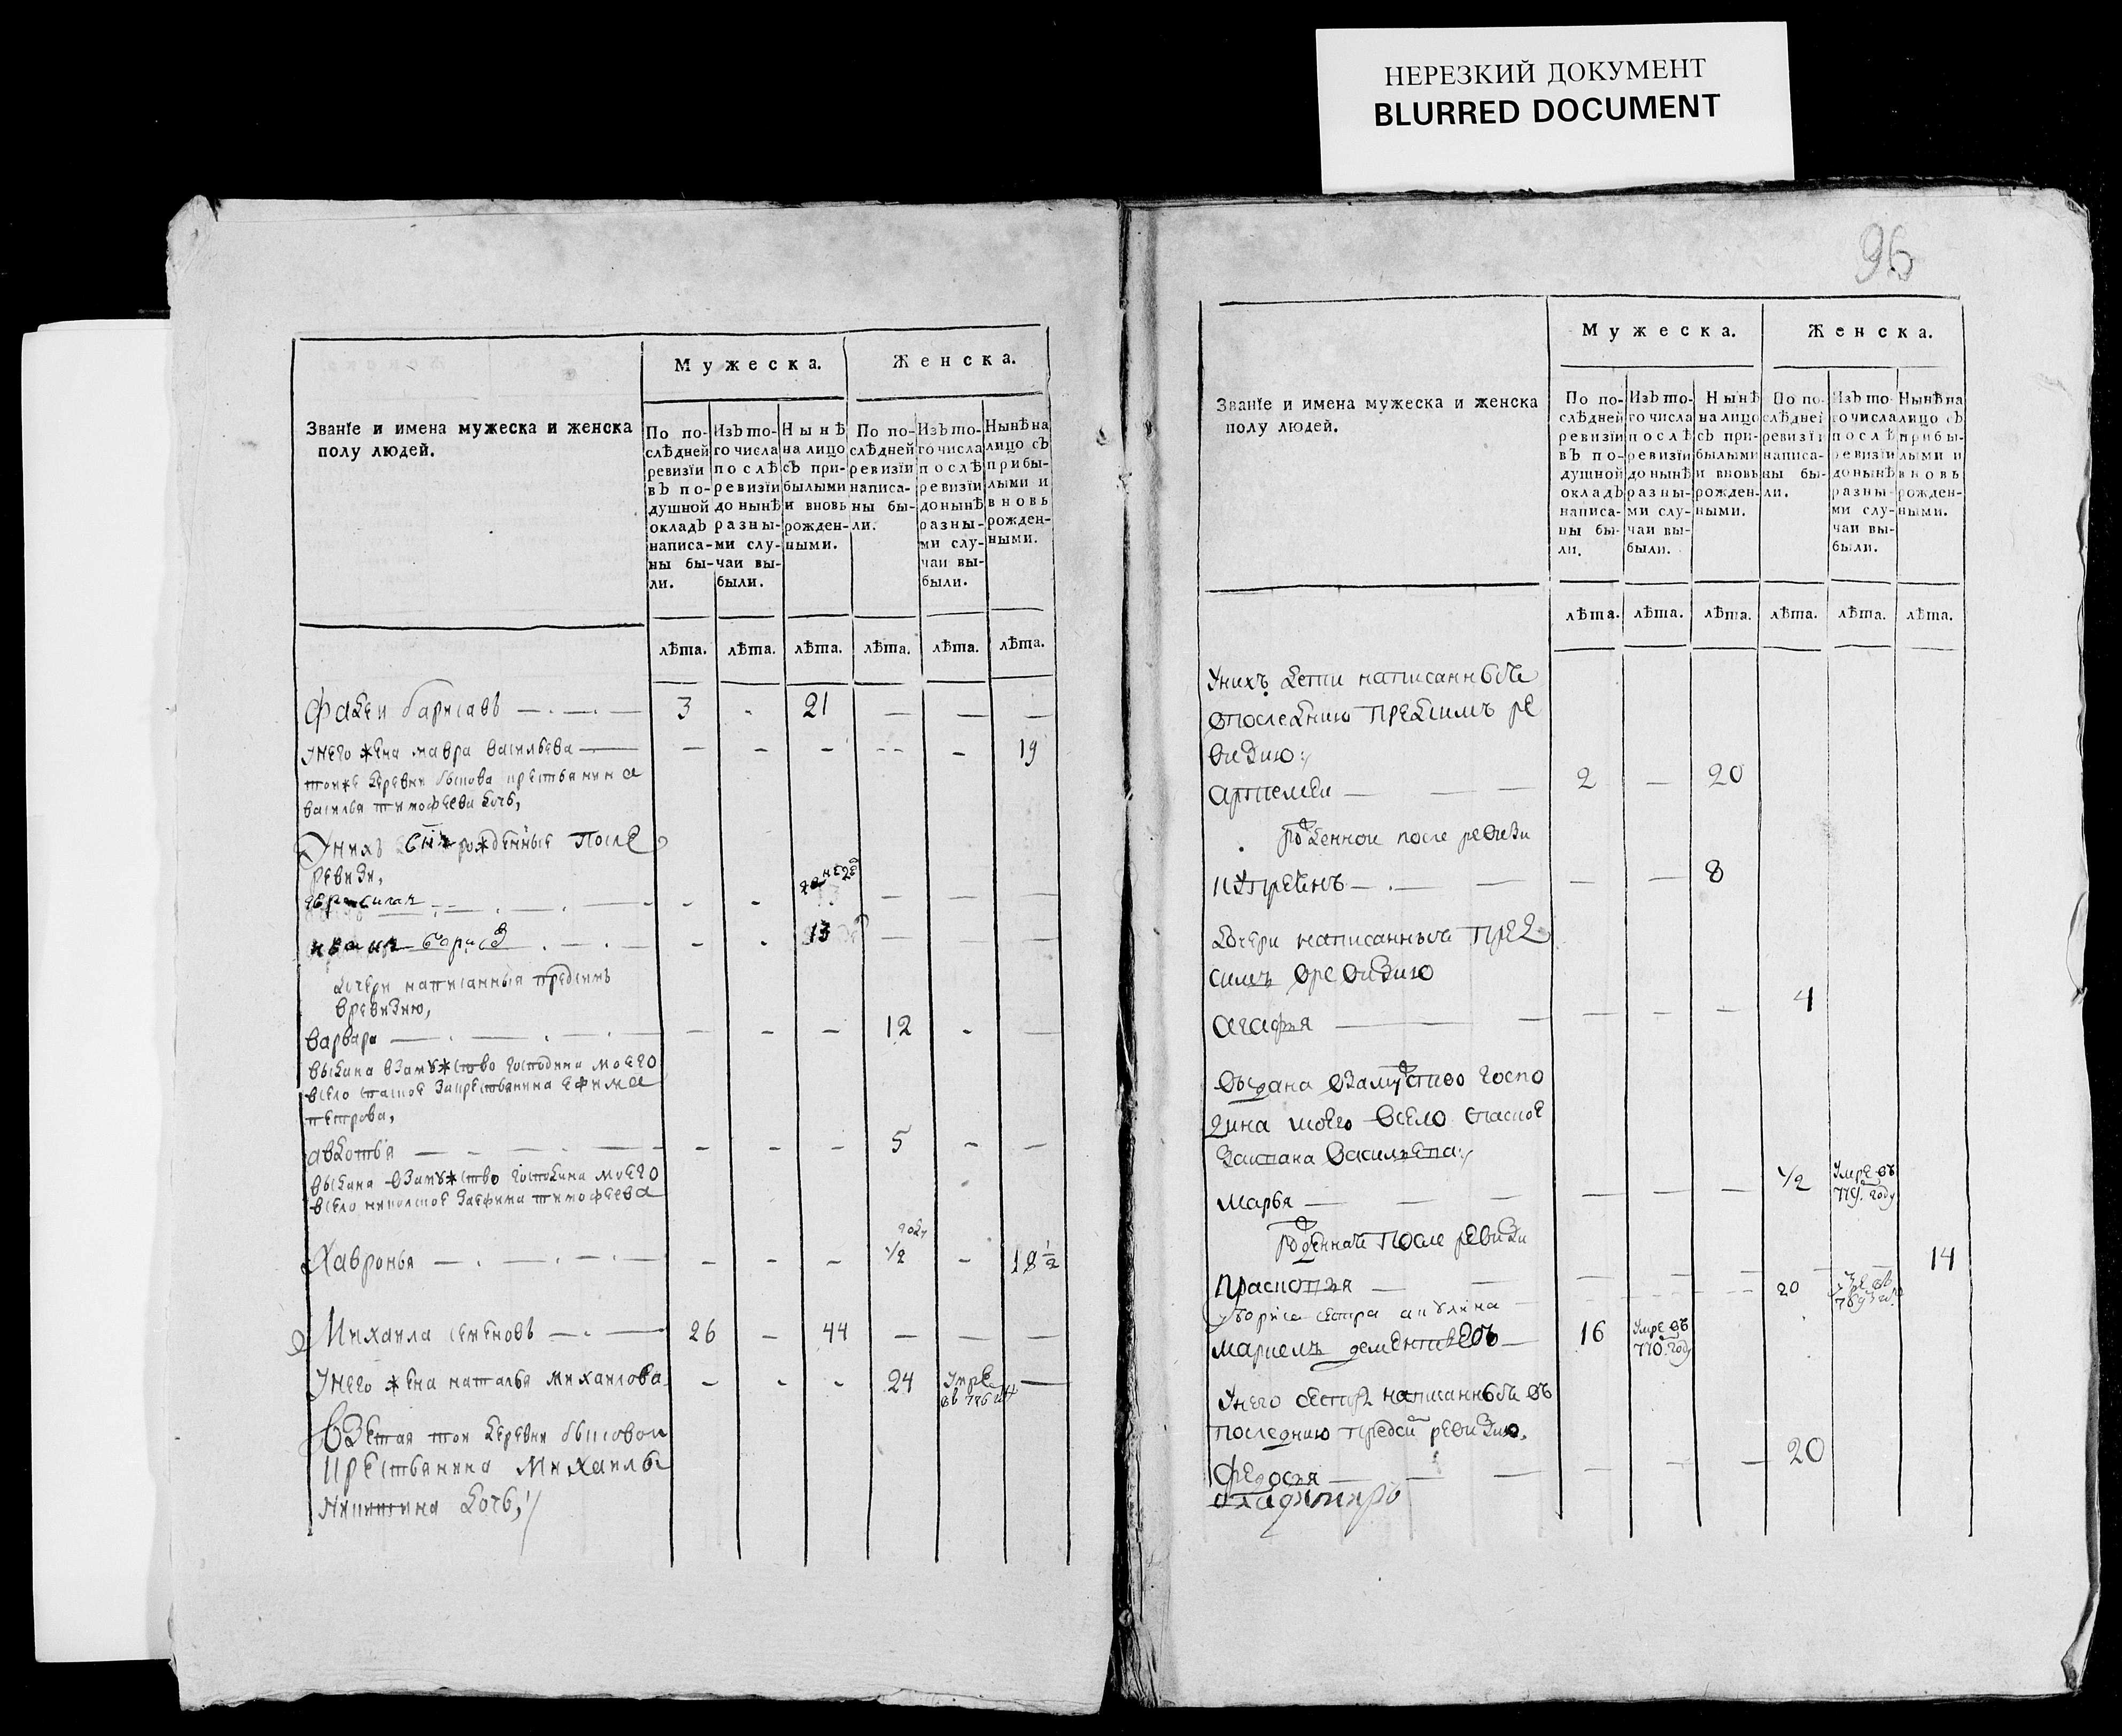 НЕРЕЗКИЙ ДОКУМЕНТ
BLURRED DOCUMENT
Званїе и имена мужеска и женска
полу людей.
Мужеска.
Женска.
По по-
слѣдней
ревизїи
въ по-
душной
окладъ
написа-
ны бы-
ли.
Изъ то-
го числа
послѣ
ревизїи
до нынѣ
разны-
ми слу-
чаи вы-
были.
Нынѣ
на лицо
съ при-
былыми
и вновь
рожден-
ными.
По по-
слѣдней
ревизїи
написа-
ны бы-
ли.
Изъ то-
го числа
послѣ
ревизїи
до нынѣ
разны-
ми слу-
чаи вы-
были.
Нынѣ на
лицо съ
прибы-
лыми и
вновь
рожден-
ными.
лѣта. лѣта. лѣта. лѣта. лѣта. лѣта.
Фадеи барисавъ 3 21
унего жена мавра васильева 19
тоиже деревни бысова крестьянина
василья тимофееви дочь,
Униxъ рожденныя после
ревизи,
иванъ борис 13
дочери написанныя предсимъ
вревизию,
варвара 12
выдана взамужство господина моего
всело спаское закрестьянина ефима
петрова,
авдотья 5
выдана взамужство господина моего
всело никольское заефима тимофеева
Хавронья 1/2 18 1/2
Михаила семеновъ 26 44
Унего жена наталья михаилова 24 умре
Взетая тои деревни бысовои
крестьянина Михаилы
никитина дочь,
96
Званїе и имена мужеска и женска
полу людей.
Мужеска.
Женска.
По по-
слѣдней
ревизїи
въ по-
душной
окладъ
написа-
ны бы-
ли.
Изъ то-
го числа
послѣ
ревизїи
до нынѣ
разны-
ми слу-
чаи вы-
были.
Нынѣ
на лицо
съ при-
былыми
и вновь
рожден-
ными.
По по-
слѣднеї
ревизїи
написа-
ны бы-
ли.
Изъ то-
го числа
послѣ
ревизїи
до нынѣ
разны-
ми слу-
чаи вы-
были.
Нынѣ на
лицо съ
прибы-
лыми и
вновь
рожден-
ными.
лѣта. лѣта. лѣта. лѣта. лѣта. лѣта.
Унихъ дети написанныя
впоследнию предсимъ ре
визию
артемеи 2 20
роденнои после ревизи
8
дочери написанныя пред
симъ вревизию
агафья 4
выдана взамуство госпо
дина моего всело спаское
марья 1/2 умре въ году
роденная после ревизи
прасковья 14
убориса сестра акулина 20
дементьевъ 16 умре въ 770 году
Унего сестры написанныя въ
последнию предсим ревизию.
федосья 20
владимиръ